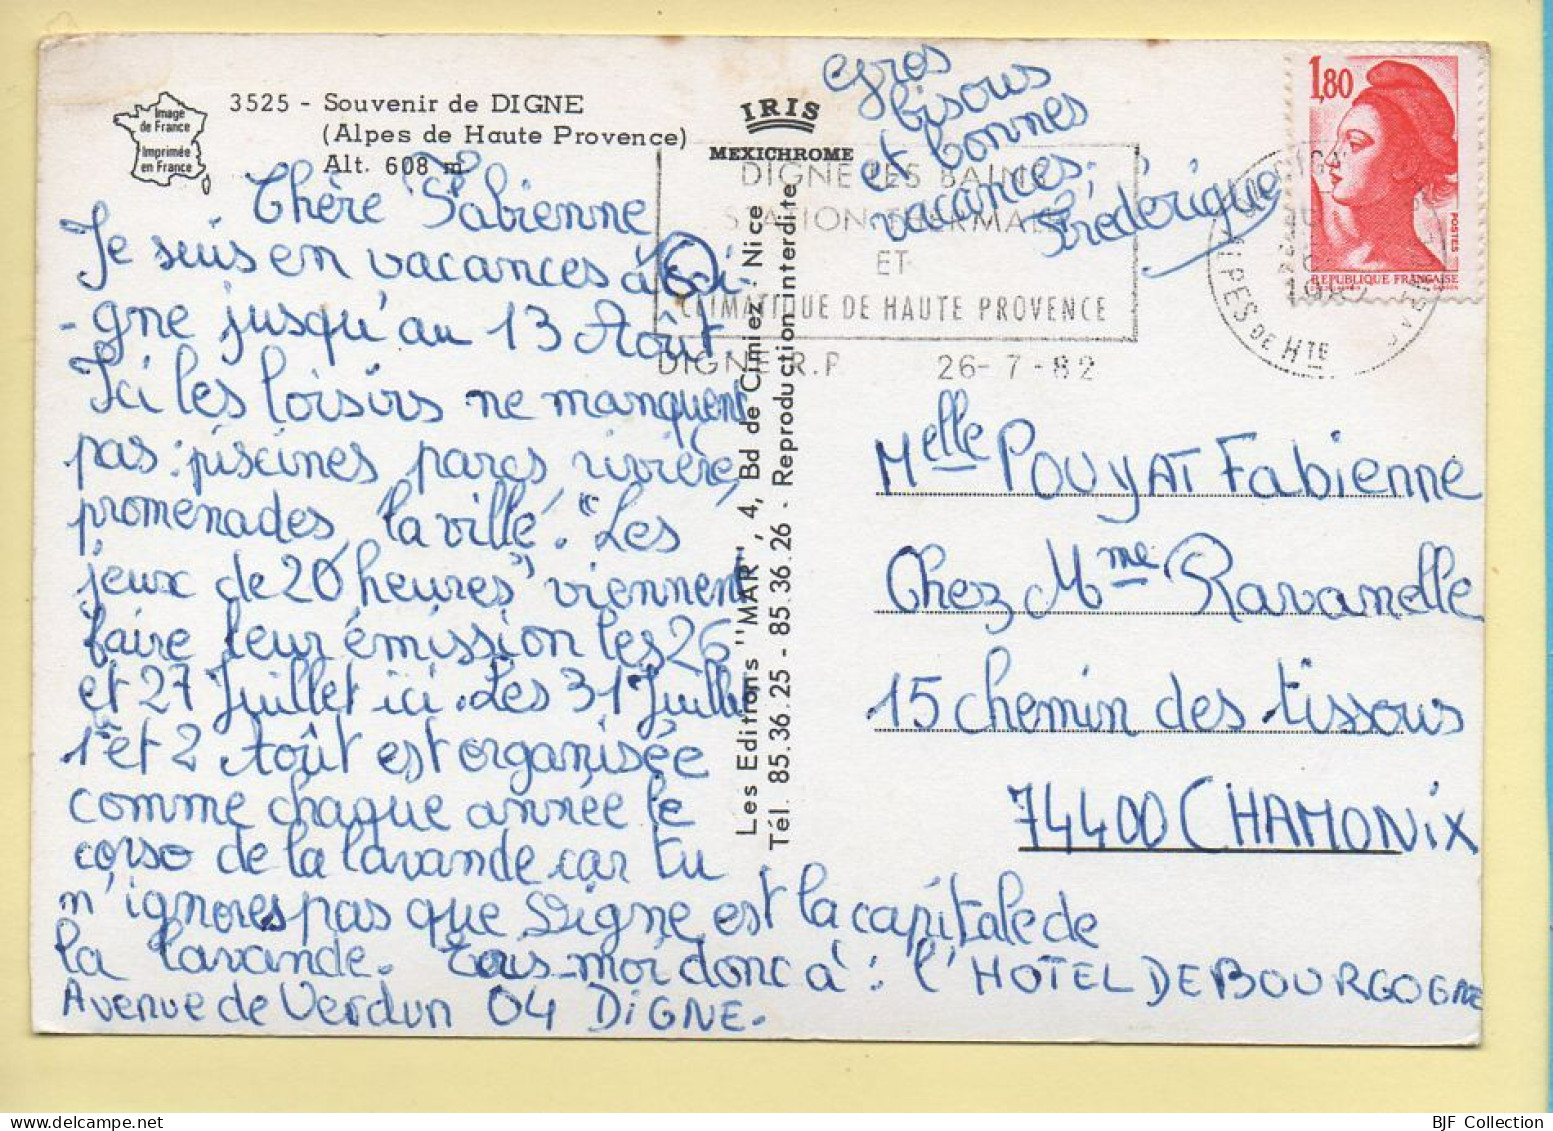 Image
de France
Imprimée
en France
3525 - Souvenir de DIGNE
(Alpes de Haute Provence)
Alt. 608 m
IRIS
MEXICHROME
Chère Fabienne
Je suis en vacances à Di-
-gne jusqu'au 13 Août
Ici les loisirs ne manquent
pas : piscines parcs rivière,
promenades, la ville. "Les
jeux de 20 heures" viennent
faire leur émission les 26
et 27 Juillet ici. Les 31 Juillet
1er et 2 Août est organisée
comme chaque année le
corso de la lavande car tu
n'ignores pas que Digne est la capitale de
la lavande. Ecris-moi donc à : l'HOTEL DE BOURGOGNE
Avenue de Verdun 04 DIGNE.
Les Editions "MAR", 4, Bd de Cimiez - Nice
Tél. 85.36.25 - 85.36.26 - Reproduction interdite
gros
bisous
et bonnes
vacances.
Frédérique
DIGNE LES BAINS
STATION THERMALE
ET
CLIMATIQUE DE HAUTE PROVENCE
DIGNE R.P. 26-7-82
ALPES DE HTE
1,80
POSTES
REPUBLIQUE FRANÇAISE
Melle POUYAT Fabienne
Chez Mme Ravanelle
15 chemin des tissous
74400 CHAMONIX
BJF Collection